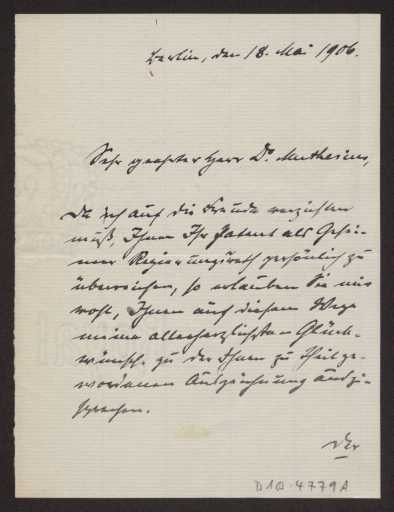 Berlin, den 18. Mai 1906.
Sehr geehrter Herr Dr. Muthesius,
Da ich auf die Freude verzichten
muß, Ihnen Ihr Patent als Gehei-
mer Regierungsrath persönlich zu
überreichen, so erlauben Sie mir
wohl, Ihnen auf diesem Wege
meine allerherzlichsten Glück-
wünsche zu der Ihnen zu Theil ge-
wordenen Auszeichnung auszu-
sprechen.
Der
D10-4779A